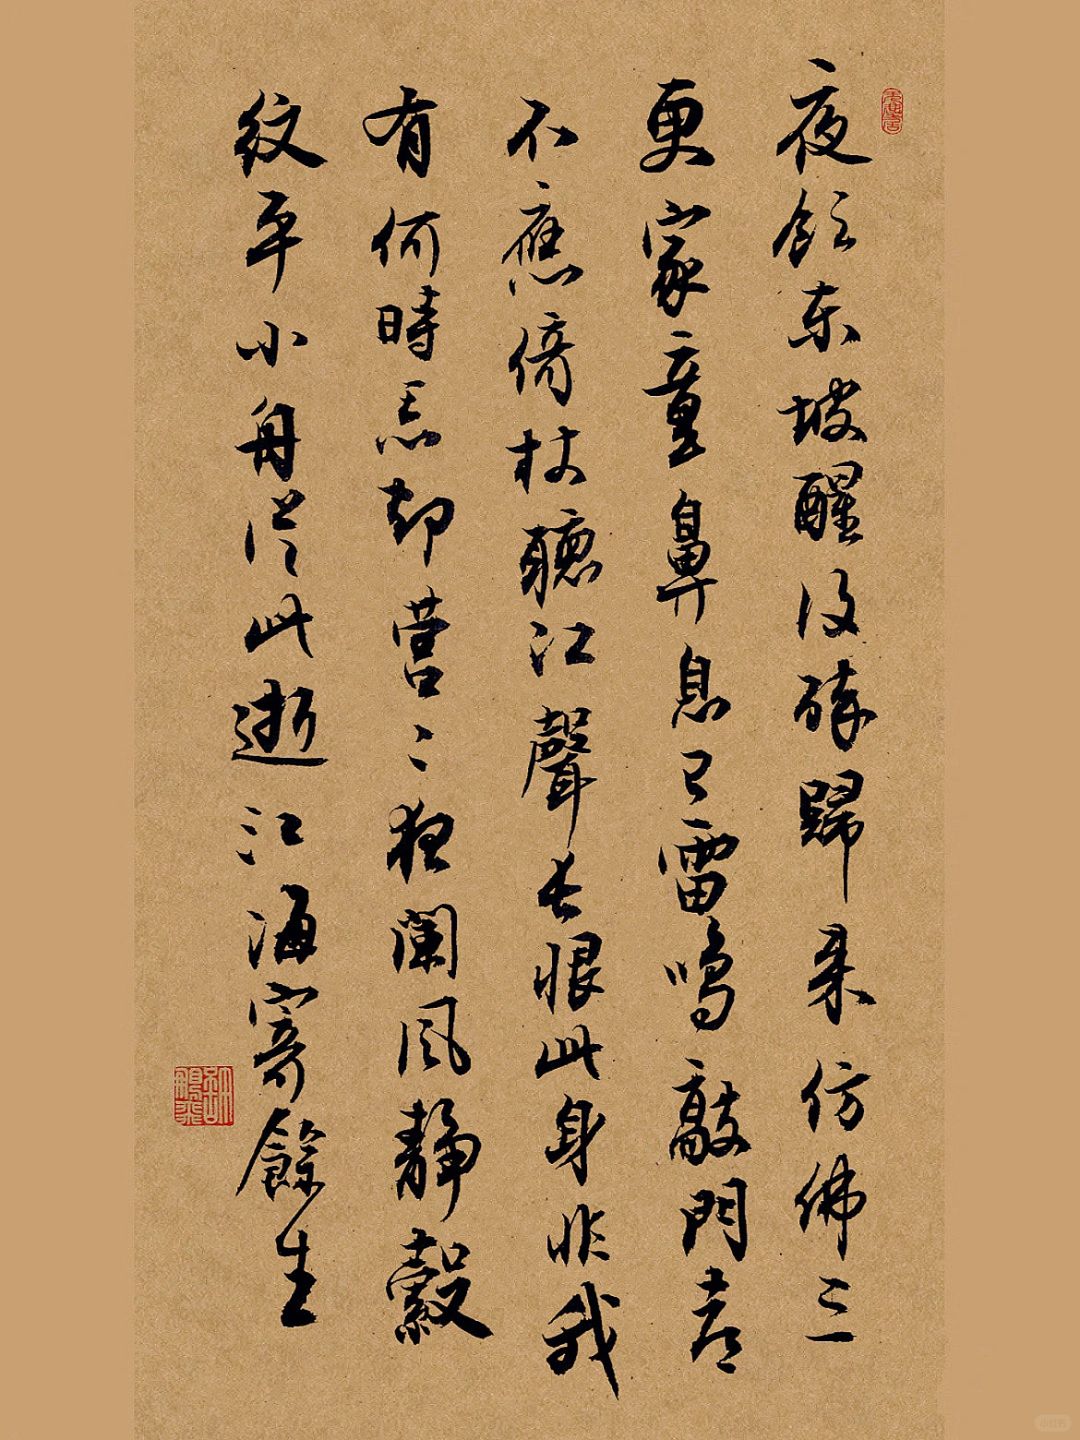 夜飲东坡醒復醉歸来仿佛三
更家童鼻息已雷鳴敲門都
不應倚杖聽江聲長恨此身非我
有何時忘却营〻夜闌風静縠
紋平小舟從此逝江海寄餘生